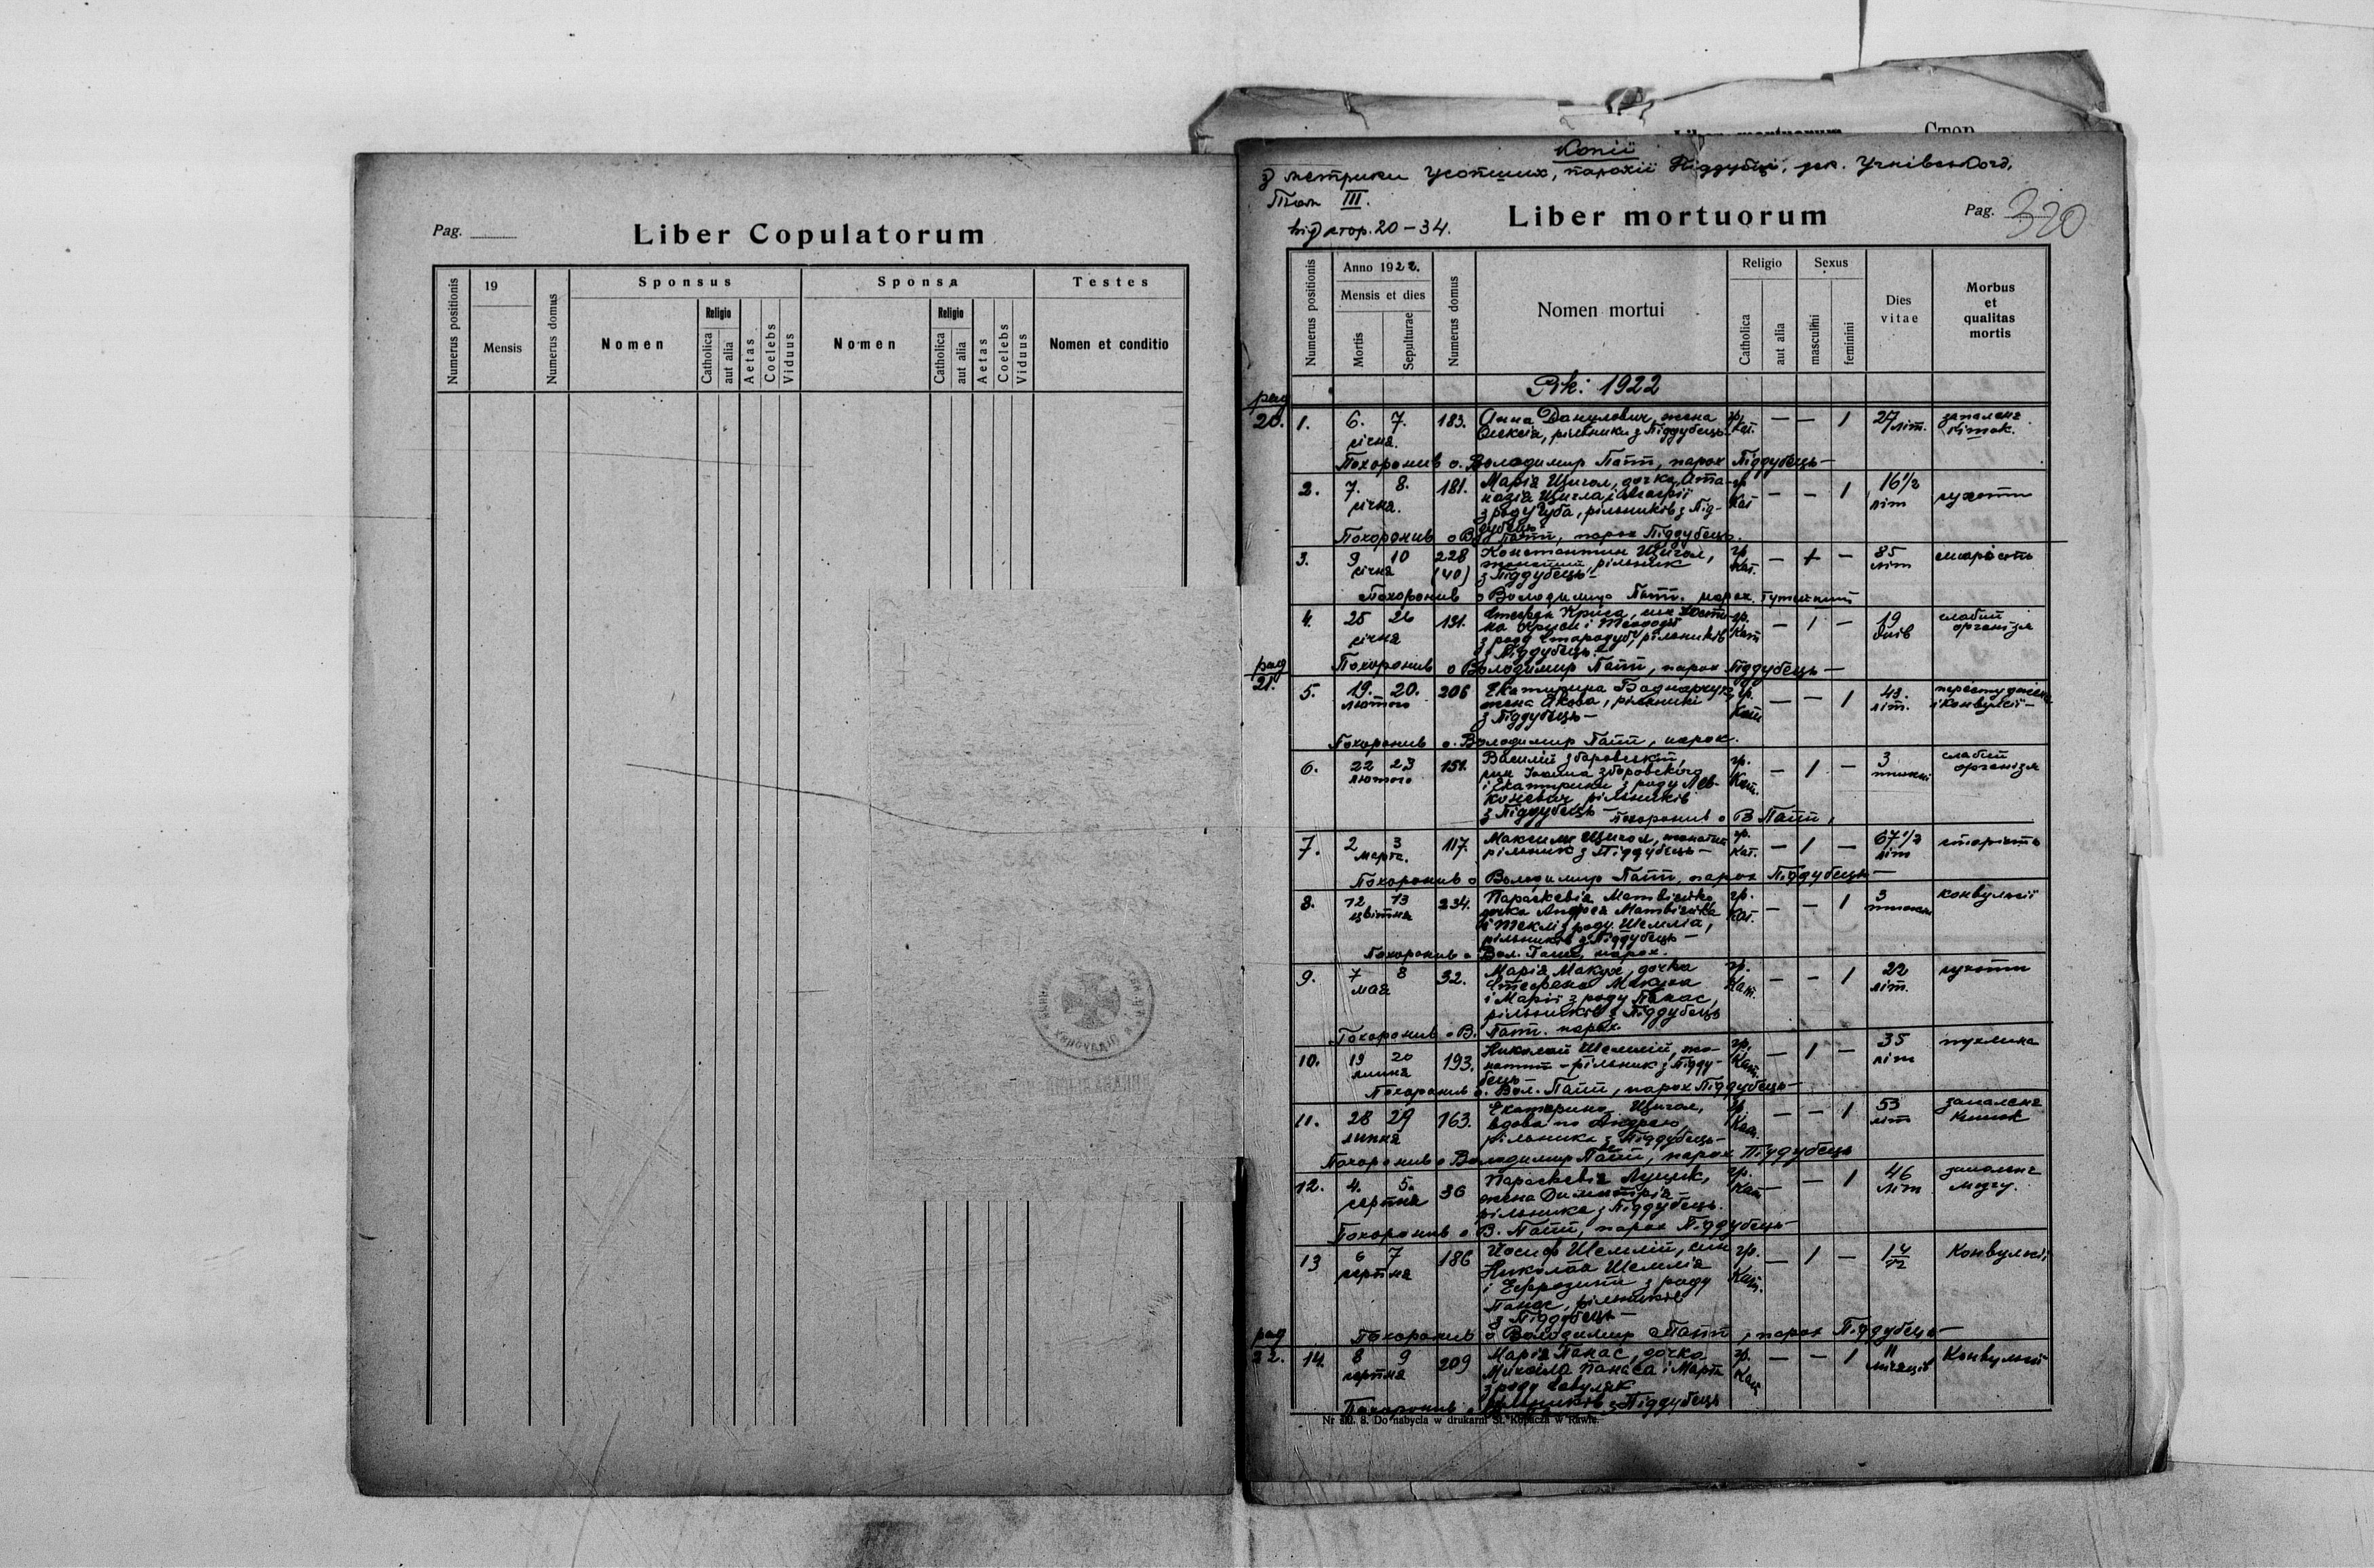 Pag.
Liber Copulatorum
Numerus positionis
19
Mensis
Numerus domus
Sponsus
Nomen
Religio
Catholica
aut alia
Aetas
Coelebs
Viduus
Sponsa
Nomen
Religio
Catholica
aut alia
Aetas
Coelebs
Viduus
Testes
Nomen et conditio
Копії
з метрики усопших, парохії Піддубці, дек. Угнівського,
Том III.
від стор. 20-34.
Liber mortuorum
Pag. 320
Numerus positionis
Anno 1922.
Mensis et dies
Mortis
Sepulturae
Numerus domus
Nomen mortui
Religio
Catholica
aut alia
Sexus
masculini
feminini
Dies vitae
Morbus et qualitas mortis
Рік: 1922
pag 20.
1. 6. 7. січня. 183. Анна Данилович, жена гр. кат. — — 1 27 літ. запалення кишок.
Олексія, рільника з Піддубець
Похоронив о. Володимир Патт, парох Піддубець —
2. 7. 8. січня. 181. Марія Щигол, дочка Ата- гр. кат — — 1 16 1/2 літ сухоти
назія Щигла і
з роду Чуба, рільників з Під-
дубець
Похоронив о В Патт, парох Піддубець.
3. 9 10 січня 228 (40) Константин Щигол, гр. кат. — + — 85 літ старість
жонатий, рільник
з Піддубець —
Похоронив о Володимир Патт. парох тутешний
4. 25 26 січня 131. Стефан Криса, син гр. кат — 1 — 19 днів слабий організм
на Криси і Теодозії
з роду Стародуб, рільників
з Піддубець.
Похоронив о Володимир Патт, парох Піддубець —
pag 21.
5. 19. 20. лютого 206 Екатирина Боднарчук, гр. кат — — 1 43. літ. перестудження і конвульсії —
жена Якова, рільники
з Піддубець —
Похоронив о. Володимир Патт, парох.
6. 22 23 лютого 151. Василій Зборовский, гр. кат. — 1 — 3 тижні слабий організм
син Іоанна Зборовского
і Екатирини з роду Лев-
коневич рільників
з Піддубець — Похоронив о В Патт,
7. 2 3 марта. 117. Максим Щигол, жонатий гр. кат. — 1 — 67 1/2 літ старість
рільник з Піддубець —
Похоронив о Володимир Патт, парох Піддубець —
8. 12 13 цвітня 234. Параскевія гр. кат. — — 1 3 тижні конвульсії
дочка Андрея
і Теклі з роду Шемлія,
рільників з Піддубець —
Похоронив о Вол. Патт, парох.
9. 7 8 мая 32. Марія Макух, дочка гр. кат. — — 1 22 літ. сухоти
Стефана Макуха
і Марії з роду Панас,
рільників з Піддубець
Похоронив о В. Патт. парох.
10. 19 20 липня 193. Николай Шемлій, жо- гр. кат. — 1 — 35 літ пухлина
натий — рільник з Підду-
бець —
Похоронив о. Вол. Патт, парох Піддубець —
11. 28 29 липня 163. Екатерина Щигол, гр. кат. — — 1 53 літ запалення кишок
вдова по Андрею,
рільника з Піддубець —
Похоронив о Володимир Патт, парох Піддубець
12. 4. 5. серпня 36 Параскевія Луцик, гр. кат — — 1 46 літ запалення мозгу.
жена Димитрія —
рільника з Піддубець.
Похоронив о В. Патт, парох Піддубець —
13 6 7 серпня 186 Йосиф Шемлій, син гр. кат. — 1 — 1 4/12 Конвульсії
Николая Шемлія
і Ефрозини з роду
Панас, рільників
з Піддубець —
Похоронив о Володимир Патт, парох Піддубець —
pag 22.
14. 8 9 серпня 209 Марія Панас, дочка гр. кат — — 1 11 місяців Конвульсії
Михайла Панаса і Марти
з роду Савуляк
рільників з Піддубець
Похоронив
Nr 80. 8. Do nabycia w drukarni St. Kopacza w Rawie.